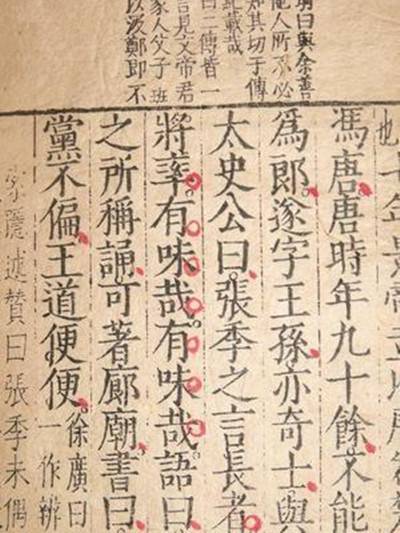 曰與余善
他人所不必
知其切于傳
紀載哉
曰二傳皆一
言見文帝君
家人父子班
以汲鄭即不
也
七年景帝立以
馮唐唐時年九十餘不能
為郎遂字王孫亦奇士與
太史公曰張季之言長者
將率有味哉有味哉語曰
之所稱誦可著廊廟書曰
黨不偏王道便便
徐廣曰
一作辨
述贊曰張季未偶